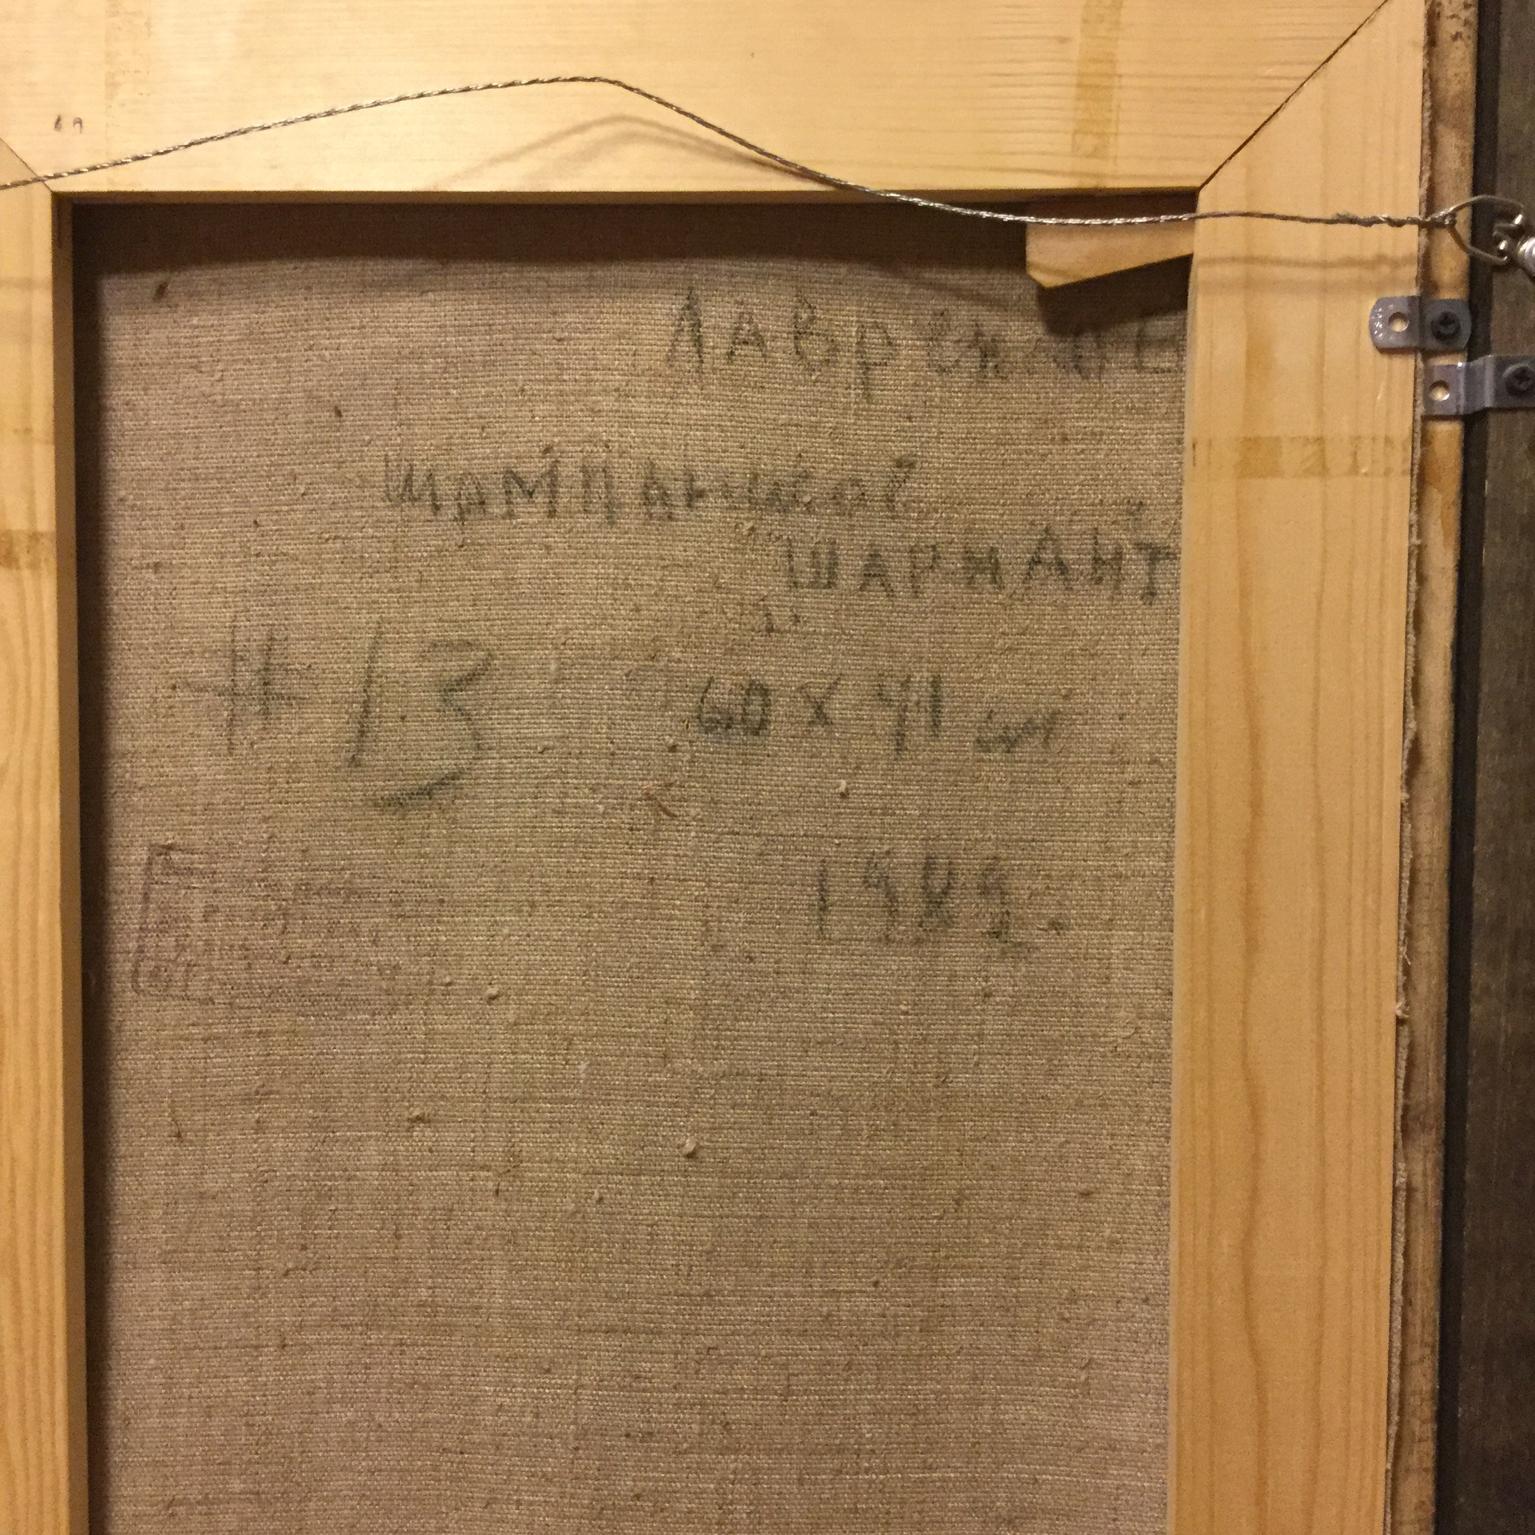 Лавренте
Шампанское
Шармант
#13 60 x 41 cm
1989